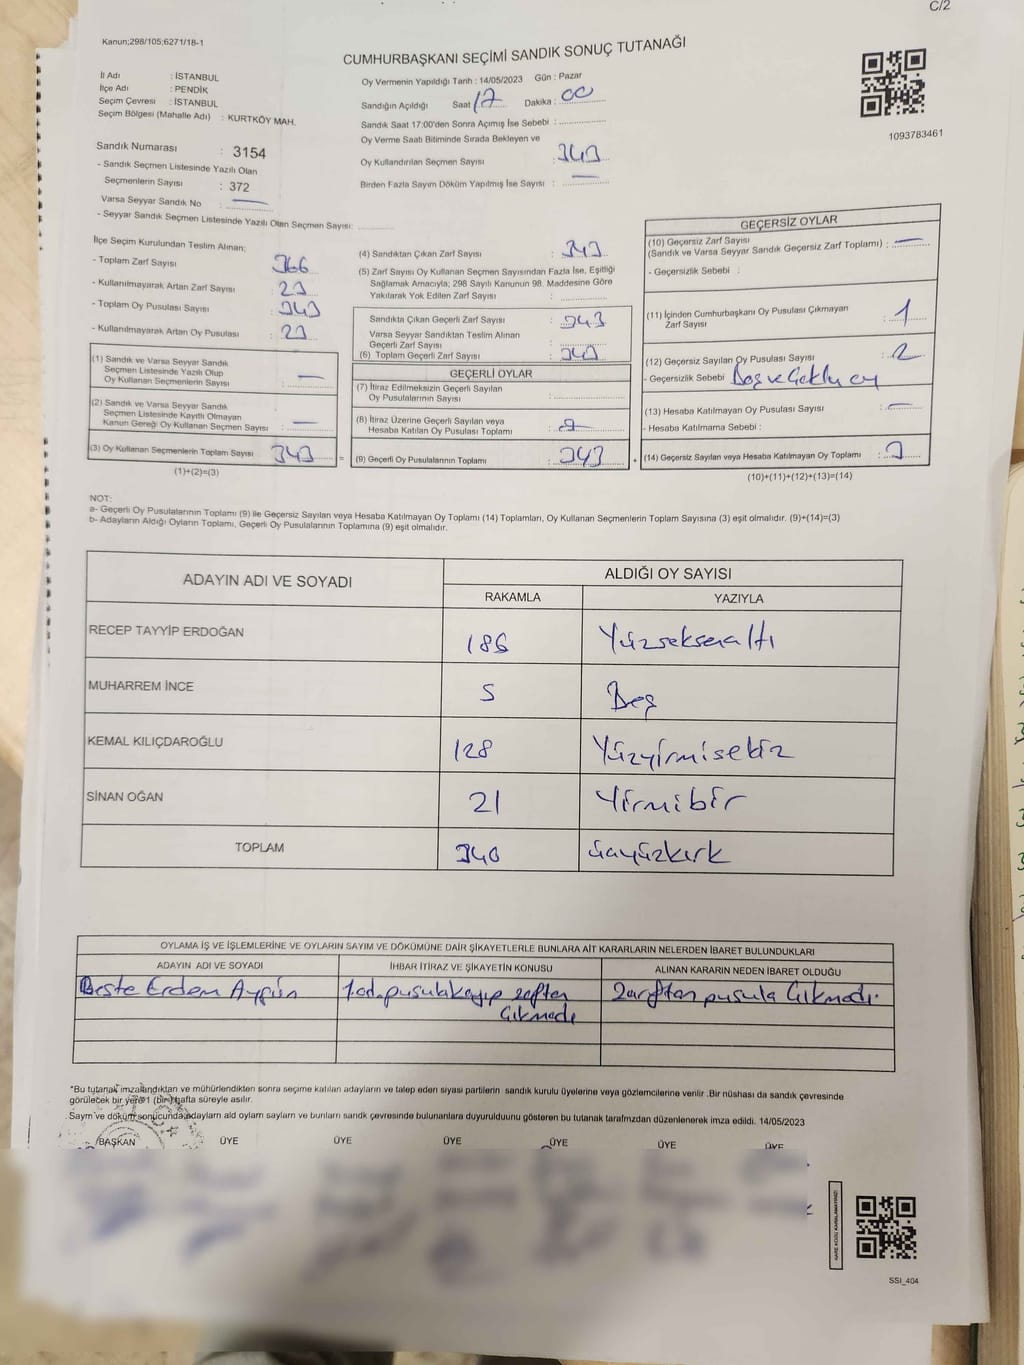 C/2
Kanun;298/105;6271/18-1
CUMHURBAŞKANI SEÇİMİ SANDIK SONUÇ TUTANAĞI
İl Adı : İSTANBUL
İlçe Adı : PENDİK
Seçim Çevresi : İSTANBUL
Seçim Bölgesi (Mahalle Adı) : KURTKÖY MAH.
Sandık Numarası : 3154
- Sandık Seçmen Listesinde Yazılı Olan
Seçmenlerin Sayısı : 372
Varsa Seyyar Sandık No : —
- Seyyar Sandık Seçmen Listesinde Yazılı Olan Seçmen Sayısı:
Oy Vermenin Yapıldığı Tarih : 14/05/2023 Gün : Pazar
Sandığın Açıldığı Saat : 17 Dakika : 00
Sandık Saat 17:00'den Sonra Açımış İse Sebebi :
Oy Verme Saati Bitiminde Sırada Bekleyen ve
Oy Kullandırılan Seçmen Sayısı : 343
Birden Fazla Sayım Döküm Yapılmış İse Sayısı : —
1093783461
İlçe Seçim Kurulundan Teslim Alınan:
- Toplam Zarf Sayısı : 366
- Kullanılmayarak Artan Zarf Sayısı : 23
- Toplam Oy Pusulası Sayısı : 343
- Kullanılmayarak Artan Oy Pusulası : 23
(1) Sandık ve Varsa Seyyar Sandık
Seçmen Listesinde Yazılı Olup
Oy Kullanan Seçmenlerin Sayısı : —
(2) Sandık ve Varsa Seyyar Sandık
Seçmen Listesinde Kayıtlı Olmayan
Kanun Gereği Oy Kullanan Seçmen Sayısı : —
(3) Oy Kullanan Seçmenlerin Toplam Sayısı : 343
(1)+(2)=(3)
(4) Sandıktan Çıkan Zarf Sayısı : 343
(5) Zarf Sayısı Oy Kullanan Seçmen Sayısından Fazla İse, Eşitliği
Sağlamak Amacıyla; 298 Sayılı Kanunun 98. Maddesine Göre
Yakılarak Yok Edilen Zarf Sayısı :
Sandıkta Çıkan Geçerli Zarf Sayısı : 343
Varsa Seyyar Sandıktan Teslim Alınan
Geçerli Zarf Sayısı :
(6) Toplam Geçerli Zarf Sayısı : 343
GEÇERLİ OYLAR
(7) İtiraz Edilmeksizin Geçerli Sayılan
Oy Pusulalarının Sayısı :
(8) İtiraz Üzerine Geçerli Sayılan veya
Hesaba Katılan Oy Pusulası Toplamı :
(9) Geçerli Oy Pusulalarının Toplamı : 343
GEÇERSİZ OYLAR
(10) Geçersiz Zarf Sayısı
(Sandık ve Varsa Seyyar Sandık Geçersiz Zarf Toplamı) : —
- Geçersizlik Sebebi :
(11) İçinden Cumhurbaşkanı Oy Pusulası Çıkmayan
Zarf Sayısı : 1
(12) Geçersiz Sayılan Oy Pusulası Sayısı : 2
- Geçersizlik Sebebi : Boş ve oy
(13) Hesaba Katılmayan Oy Pusulası Sayısı : —
- Hesaba Katılmama Sebebi :
(14) Geçersiz Sayılan veya Hesaba Katılmayan Oy Toplamı : 3
(10)+(11)+(12)+(13)=(14)
NOT:
a- Geçerli Oy Pusulalarının Toplamı (9) ile Geçersiz Sayılan veya Hesaba Katılmayan Oy Toplamı (14) Toplamları, Oy Kullanan Seçmenlerin Toplam Sayısına (3) eşit olmalıdır. (9)+(14)=(3)
b- Adayların Aldığı Oyların Toplamı, Geçerli Oy Pusulalarının Toplamına (9) eşit olmalıdır.
ADAYIN ADI VE SOYADI ALDIĞI OY SAYISI
RAKAMLA YAZIYLA
RECEP TAYYİP ERDOĞAN 186 Yüzseksenaltı
MUHARREM İNCE 5 Beş
KEMAL KILIÇDAROĞLU 128 Yüzyirmisekiz
SİNAN OĞAN 21 Yirmibir
TOPLAM 340 üçyüzkırk
OYLAMA İŞ VE İŞLEMLERİNE VE OYLARIN SAYIM VE DÖKÜMÜNE DAİR ŞİKAYETLERLE BUNLARA AİT KARARLARIN NELERDEN İBARET BULUNDUKLARI
ADAYIN ADI VE SOYADI İHBAR İTİRAZ VE ŞİKAYETİN KONUSU ALINAN KARARIN NEDEN İBARET OLDUĞU
Beste Erdem Aygün 1 ad. pusula kayıp zarftan Zarftan pusula Çıkmadı.
Çıkmadı
*Bu tutanak imzalandıktan ve mühürlendikten sonra seçime katılan adayların ve talep eden siyasi partilerin sandık kurulu üyelerine veya gözlemcilerine verilir .Bir nüshası da sandık çevresinde
görülecek bir yere 1 (bir) hafta süreyle asılır.
Sayım ve döküm sonucunda adayların ald oyların sayların ve bunların sandık çevresinde bulunanlara duyurulduunu gösteren bu tutanak tarafmzdan düzenlenerek imza edildi. 14/05/2023
BAŞKAN ÜYE ÜYE ÜYE ÜYE ÜYE ÜYE
KARE KODU KARALAMAYINIZ!
SSI_404